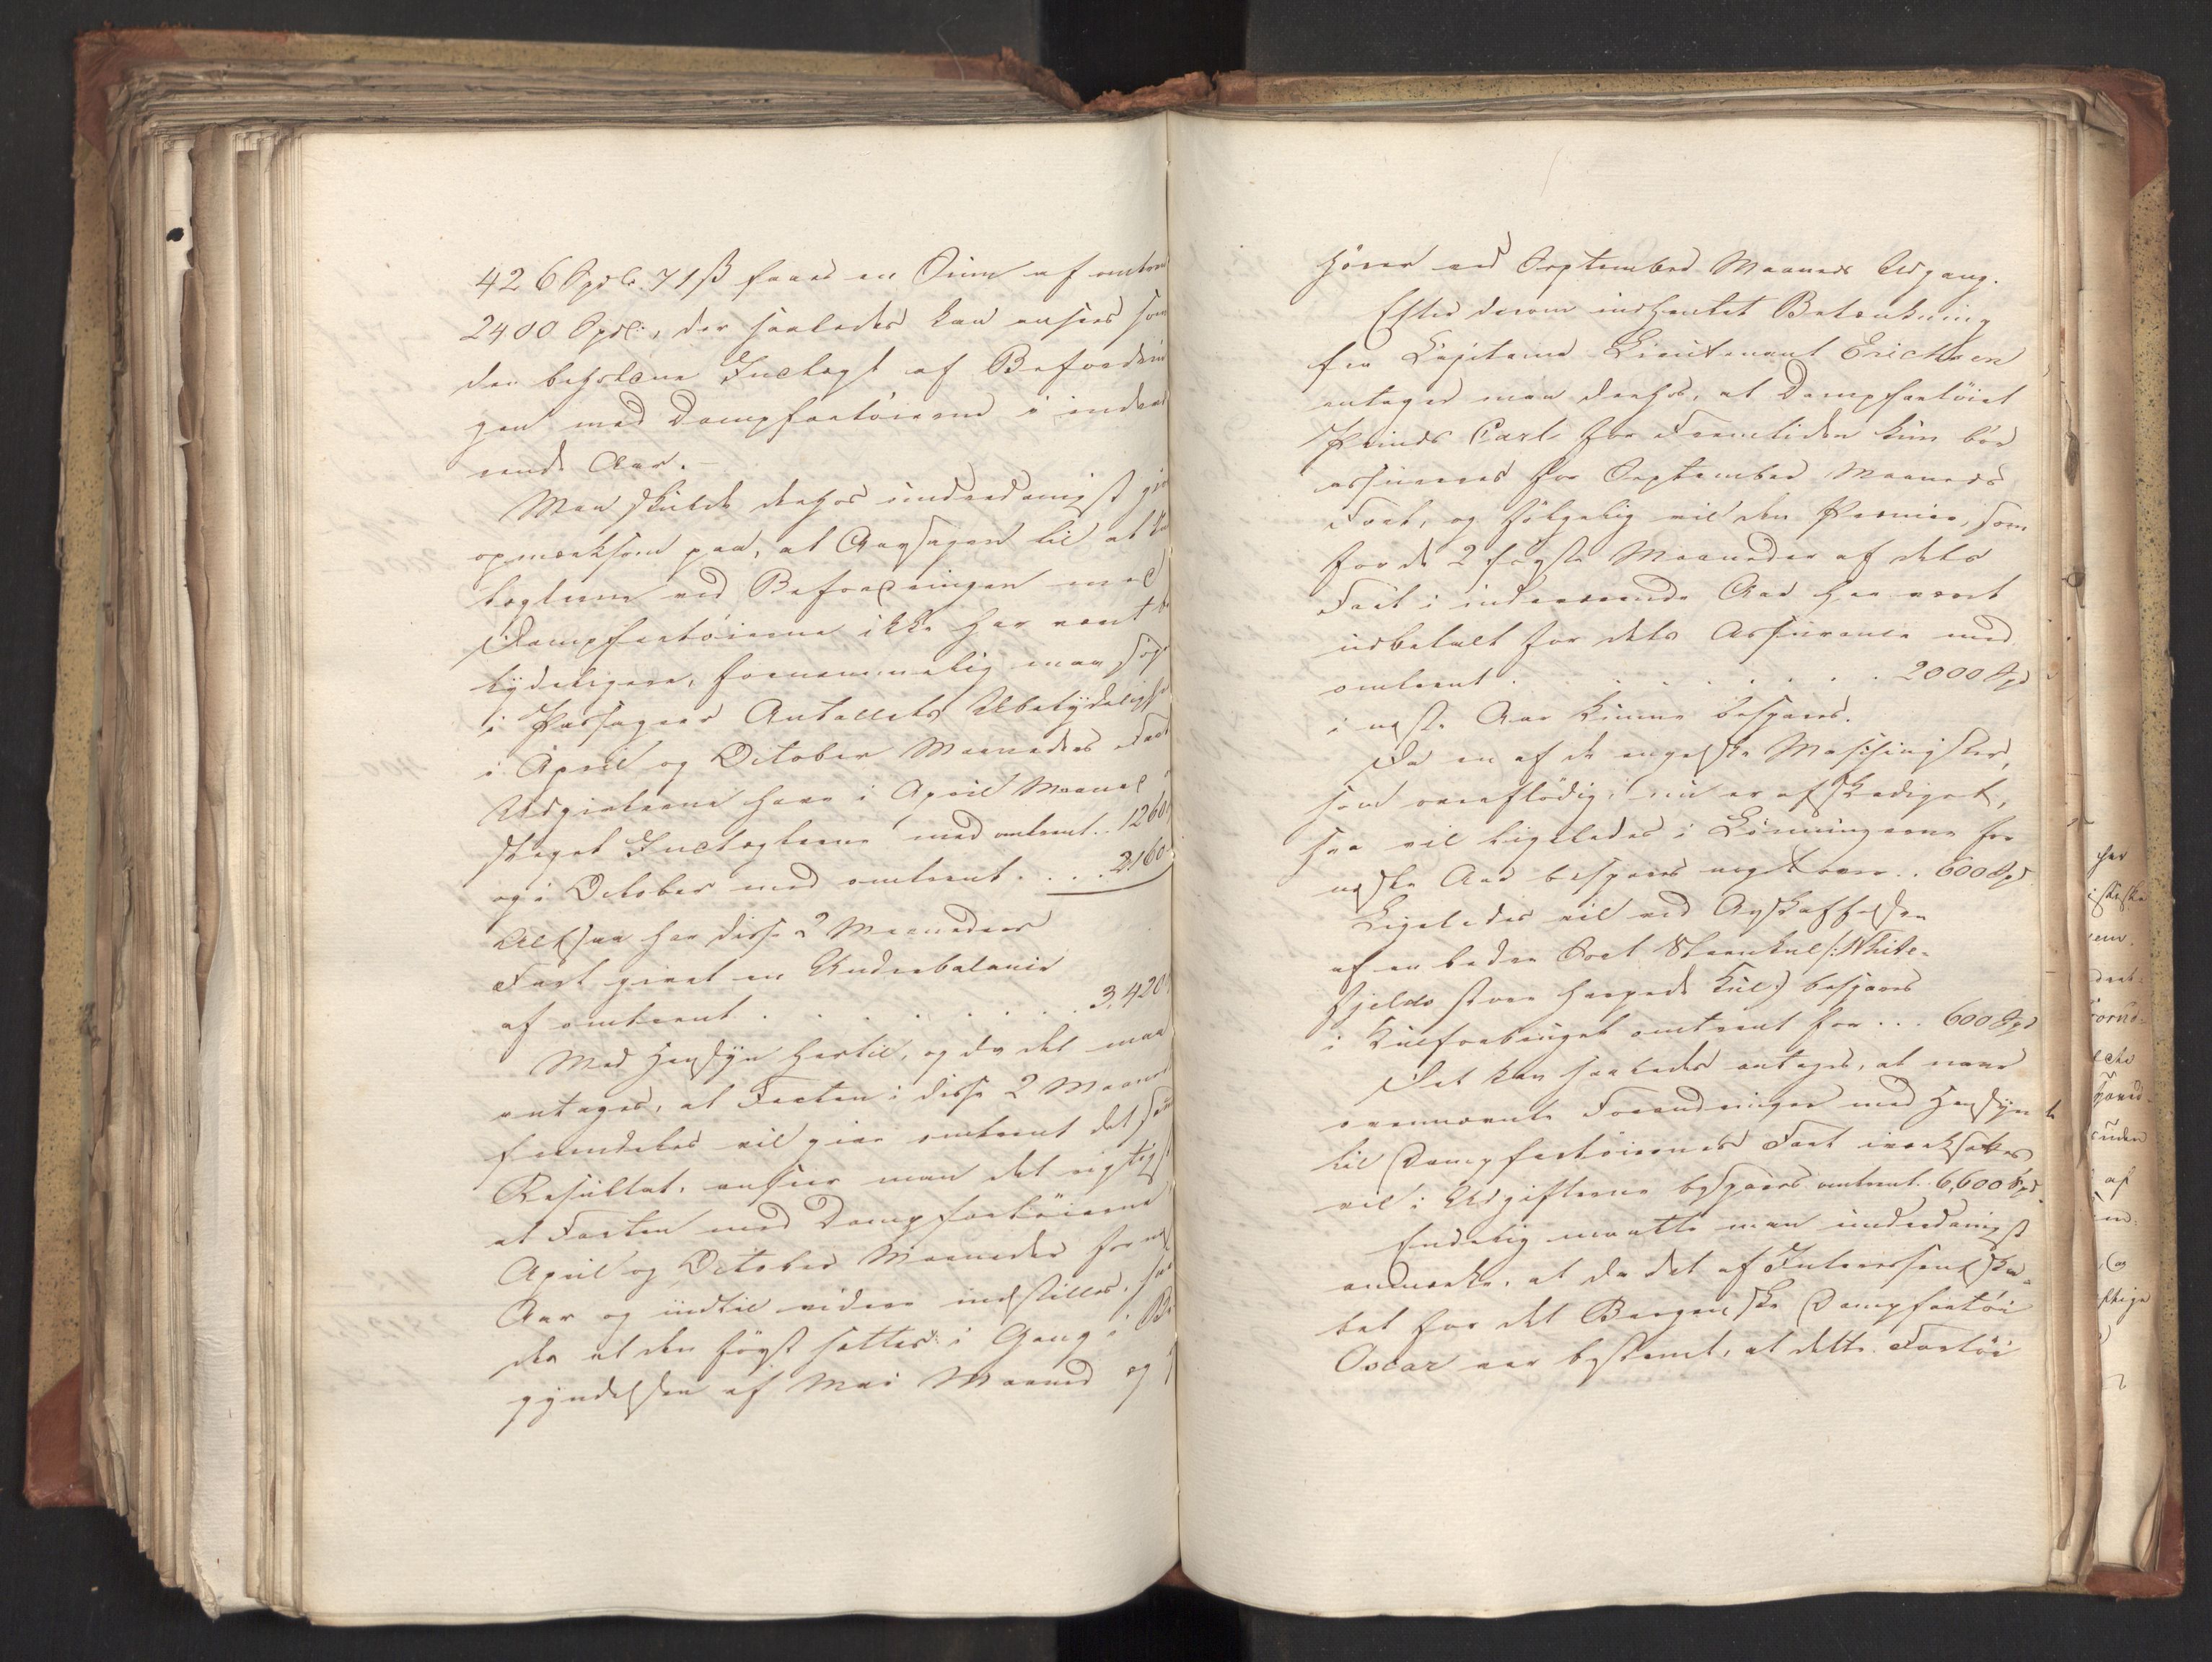 426 Spdlr. 71 ß faaes en Sum af omtrent
2400 Spdl:, der saaledes kan ansees som
den beholdne Indtægt af Befordrin
gen med Dampfartøierne i indevæ
rende Aar.-
Man skulde derhos underdanigst giøre
opmærksom paa, at Aarsagen til at Ind
tægterne ved Befordringen med
Dampfartøierne ikke har været be
tydeligere, fornemmelig maa søges
i Passageer Antallets Ubetydelighed
i April og October Maaneders Fart
Udgifterne have i April Maaned
steget Indtægterne med omtrent .. 1260
og i October med omtrent. . . . 2160
Altsaa har disse 2 Maaneders
Fart givet en Underbalance
af omtrent . . . . . . . . 3,420
Med Hensyn hertil, og da det maa
antages, at Farten i disse 2 Maaneder
fremdeles vil give omtrent det samme
Resultat, anseer man det rigtigst
at Farten med Dampfartøierne
April og October Maaneder for næste
Aar og indtil videre indstilles, saa
der at den først sættes i Gang i Be
gyndelsen af Mai Maaned og
hører ved September Maaneds Udgang.
Efter derom indhentet Betænkning
fra Capitaine Lieutenant Erichsen
antager man derhos, at Dampfartøiet
Prinds Carl for Fremtiden kun bør
assureres for September Maaneds
Fart, og følgelig vil den Præmie, som
for de 2 første Maaneder af dets
Fart i indeværende Aar har været
udbetalt for dets Assurance med
omtrent . . . . . . . . . . 2000 Spd
i næste Aar kunne bespares.
Da en af de engelske Maschinister,
som overflødig, nu er afskediget,
saa vil ligeledes i Lønningerne for
næste Aar bespares noget over .. 600 Spd
Ligeledes vil ved Anskaffelsen
af en bedre Sort Steenkul /: White-
fjelds store harpede Kul :/ bespares
i Kulforbruget omtrent for ... 600 Spd
Det kan saaledes antages, at naar
ovennævnte Forandringer med Hensyn
til Dampfartøiernes Fart iværksættes
vil i Udgifterne bespares omtrent 6,600 Spd.
Endelig maatte man underdanigst
anmærke, at da det af Interessentska-
bet for det Bergenske Dampfartøi
Oscar var bestemt, at dette Fartøi